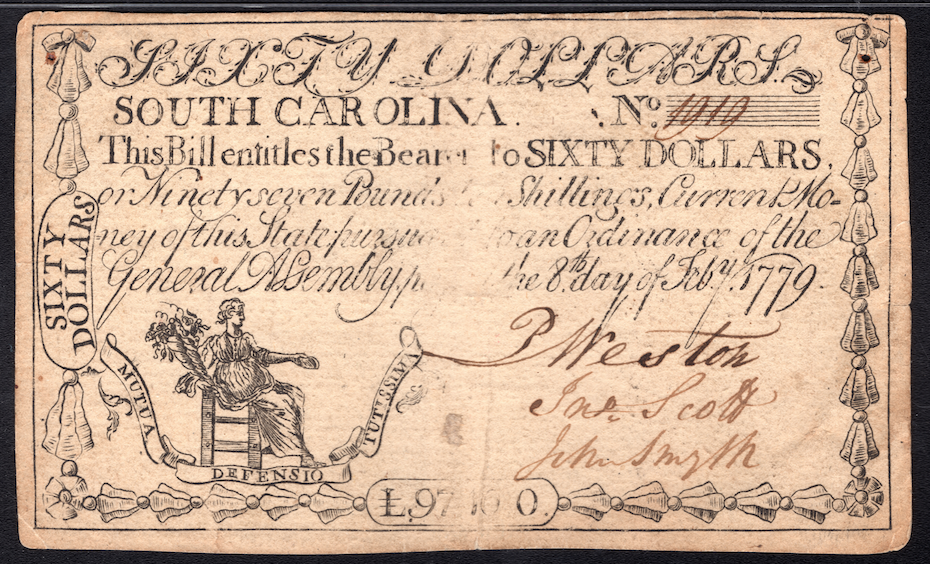 SIXTY DOLLARS.
SOUTH CAROLINA. No. 1919
This Bill entitles the Bearer to SIXTY DOLLARS,
or Ninety seven Pounds Shillings, Current Mo-
ney of this State, pursuant to an Ordinance of the
General Assembly, the 8th. day of Feby. 1779.
SIXTY
DOLLARS
P Weston
Jno. Scott
John Smyth
MUTUA
DEFENSIO
TUTISSIMA
£.97 10 0.